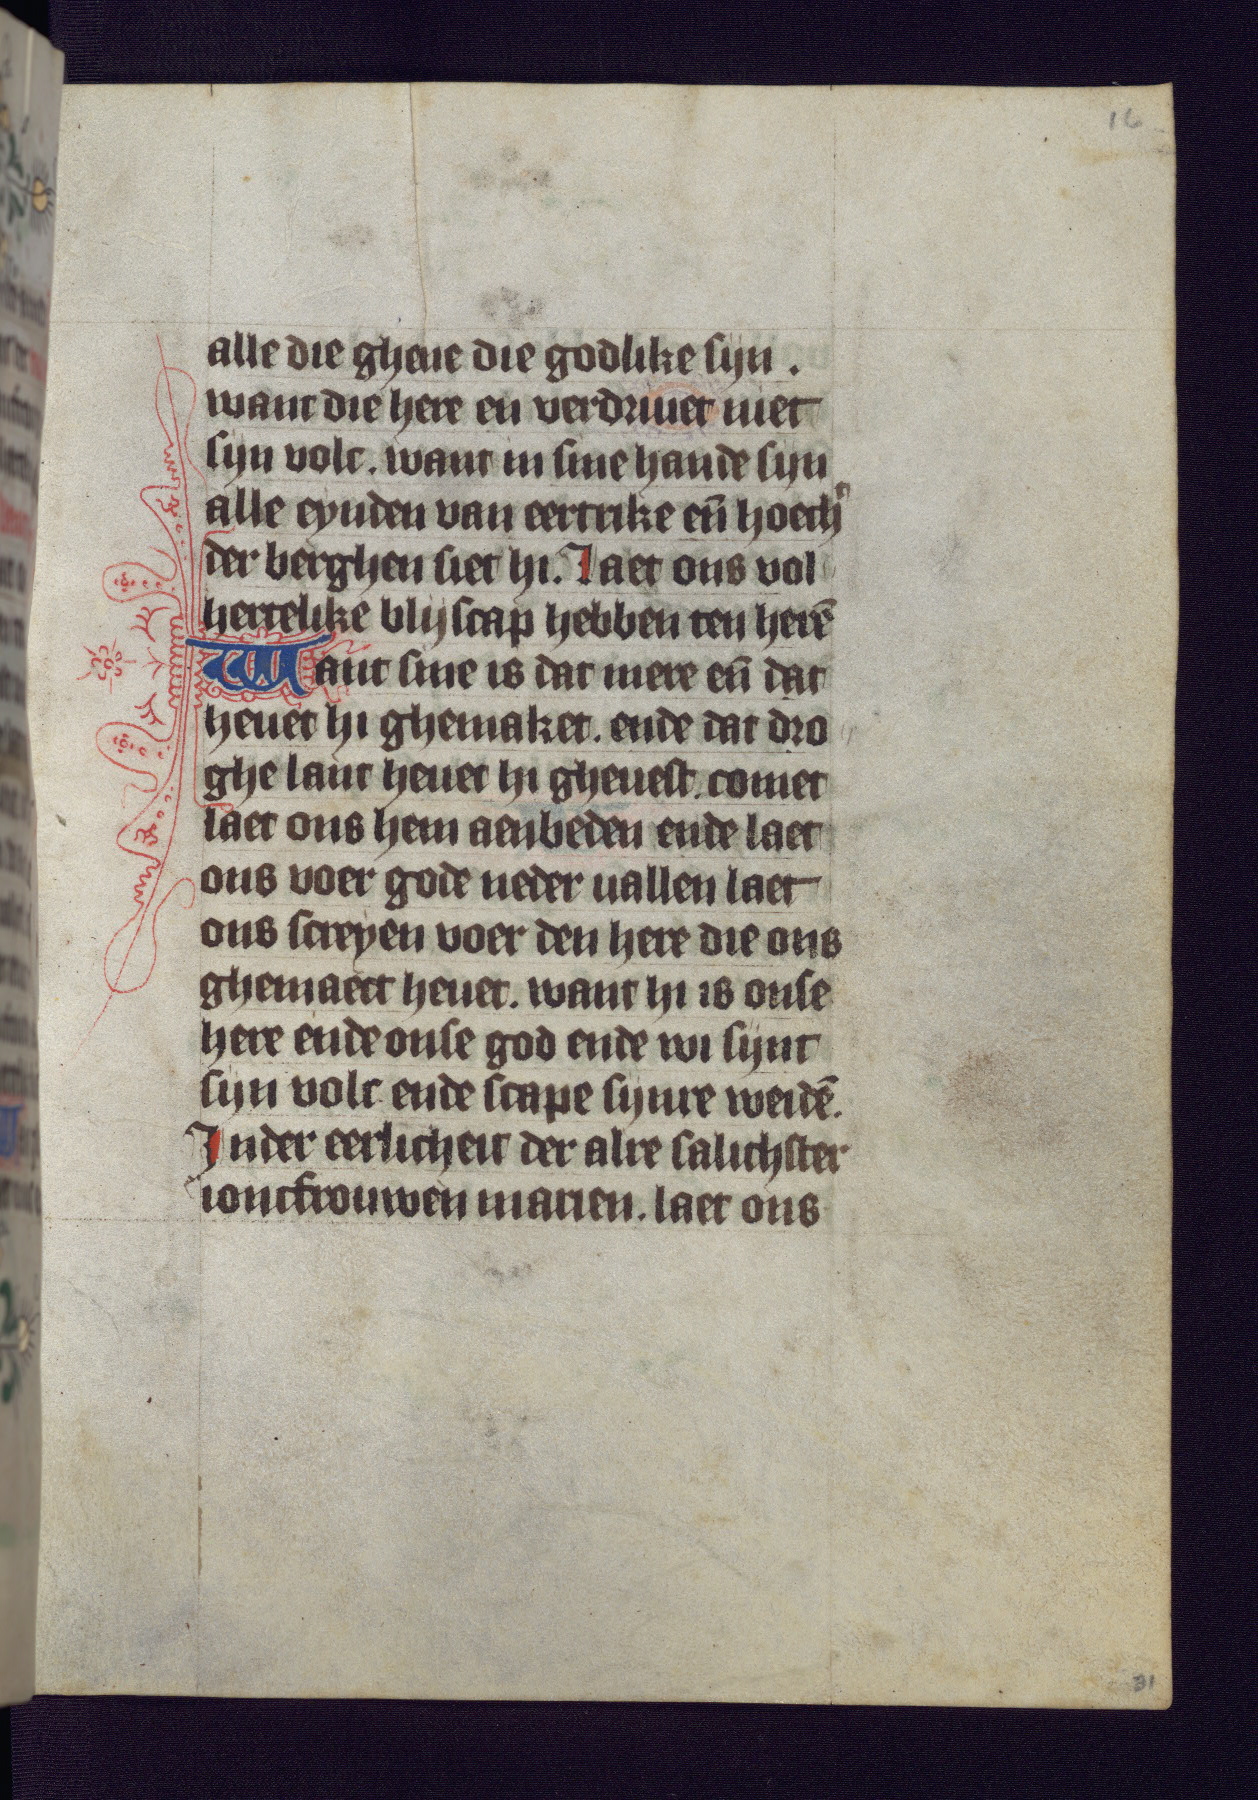 16
alle die ghene die godlike sijn .
want die here en verdriuet niet
sijn volc . want in sine hande sijn
alle eynden van eertrike en̄ hoechͭ
der berghen siet hi . Laet ons vol
hertelike blijscap hebben ten herē
Want sine is dat mere en̄ dat
heuet hi ghemaket . ende dat dro
ghe lant heuet hi gheuest . comet
laet ons hem aenbeden ende laet
ons voer gode neder uallen laet
ons screyen voer den here die ons
ghemaect heuet . want hi is onse
here ende onse god ende wi sijnt
sijn volc ende scape sijnre weidē .
Inder eerlicheit der alre salichster
ioncfrouwen marien . laet ons